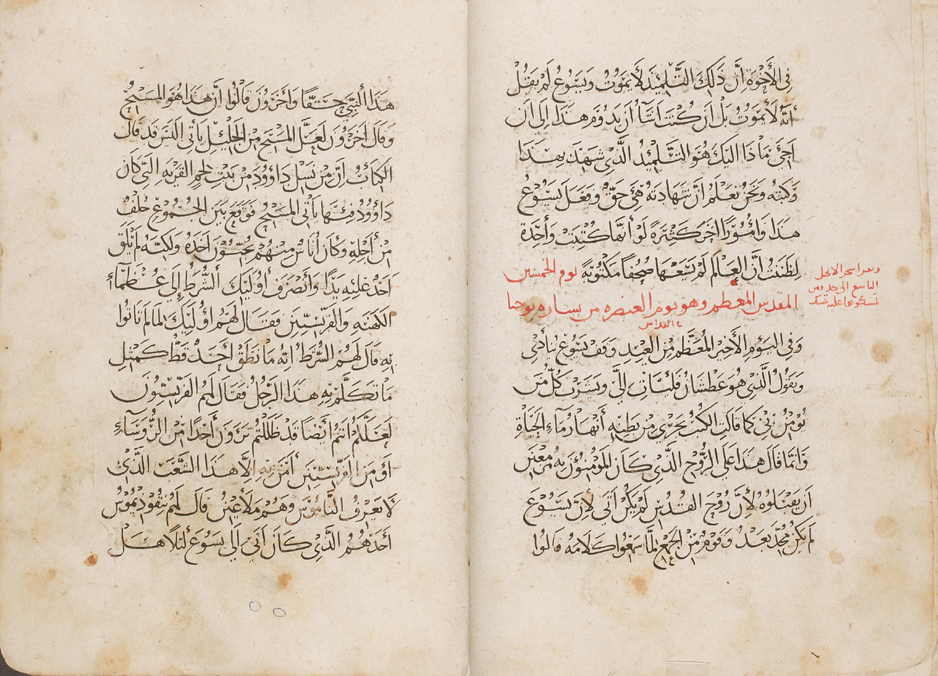 في الأخوة أن ذلك التلميذ لا يموت ويسوع لم يقل
أنه لا يموت بل أن كنت أشأ أن يدوم هذا إلى أن
أجي ماذا إليك هو التلميذ الذي شهد بهذا
وكتبه ونحن نعلم أن شهادته هي حق وفعل يسوع
هذا وأمورًا أخر كثيرة لو أنها كتبت واحدة
لظننت أن العالم لم يسعها صحفا مكتوبة يوم الخمسين
المقدس المعظم وهو يوم العنصره من بشاره يوحنا
القداس
وفي اليوم الأخير المعظم من العيد وقف يسوع ينادي
ويقول الذي هو عطشان فليأتي إلي ويشرب كل من
يؤمن بي كما قالت الكتب يجري من بطنه أنهار ماء الحياة
وإنما قال هذا على الروح الذي كان المومنون به مزمعين
أن يقبلوه لأن روح القدس لم يكن أتى لأن يسوع
لم يكن مجد بعد وقوم من الجمع لما سمعوا كلامه قالوا
هذا النبي حقًا وأخرون قالوا أن هذا هو المسيح
وقال أخرون لعل المسيح من الجليل يأتي أليس قد قال
الكتاب أن من نسل داوود من بيت لحم القريه التي كان
داوود فيها يأتي المسيح فوقع بين الجموع خلف
من أجله وكان أناس منهم يحبون أخذه ولكنه لم يلق
أحد عليه يدًا وانصرف أوليك الشرط إلى عظماء
الكهنه والفريسيين فقال لهم أوليك لما لم تاتوا
به قال لهم الشرط أنه ما نطق أحد قط كمثل
ما تكلم به هذا الرجل فقال لهم الفريسيون
لعلكم أنتم أيضًا قد ظللتم ترون أحدًا من الروساء
أو من الفريسيين أمن به إلا هذا الشعب الذي
لا يعرف الناموس وهم ملاعين قال لهم نيقوذيموس
أحدهم الذي كان أتى إلى يسوع ليلا هل